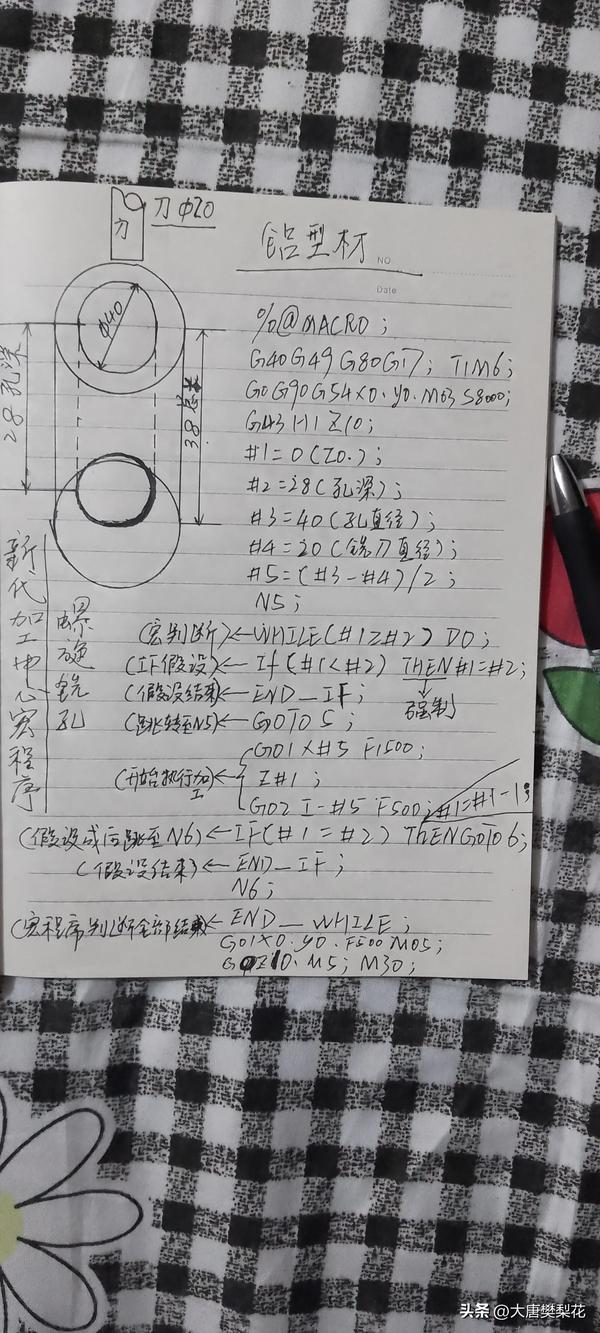 刀
刀 Φ20
铝型材
NO.
Date
Φ40
28 孔深
38总长
新代加工中心宏程序
螺旋铣孔
%@MACRO;
G40 G49 G80 G17; T1M6;
G0 G90 G54 X0. Y0. M03 S8000;
G43 H1 Z10;
#1=0(Z0.);
#2=28(孔深);
#3=40(孔直径);
#4=20(铣刀直径);
#5=(#3-#4)/2;
N5;
(宏判断)←WHILE(#1≥#2) DO;
(IF假设)←If(#1<#2) THEN #1=#2;
(假设结束)←END_IF;
强制
(跳转至N5)←GOTO 5;
G01 X#5 F1500;
(开始执行加工)← Z#1;
G02 I-#5 F500; #1=#1-1;
(假设成后跳至N6)←IF(#1=#2) ThENGOTO6;
(假设结束)←END_IF;
N6;
(宏程序判断全部结束)←END_WHILE;
G01X0. Y0. F500 M05;
G0Z10. M5; M30;
头条 @大唐樊梨花